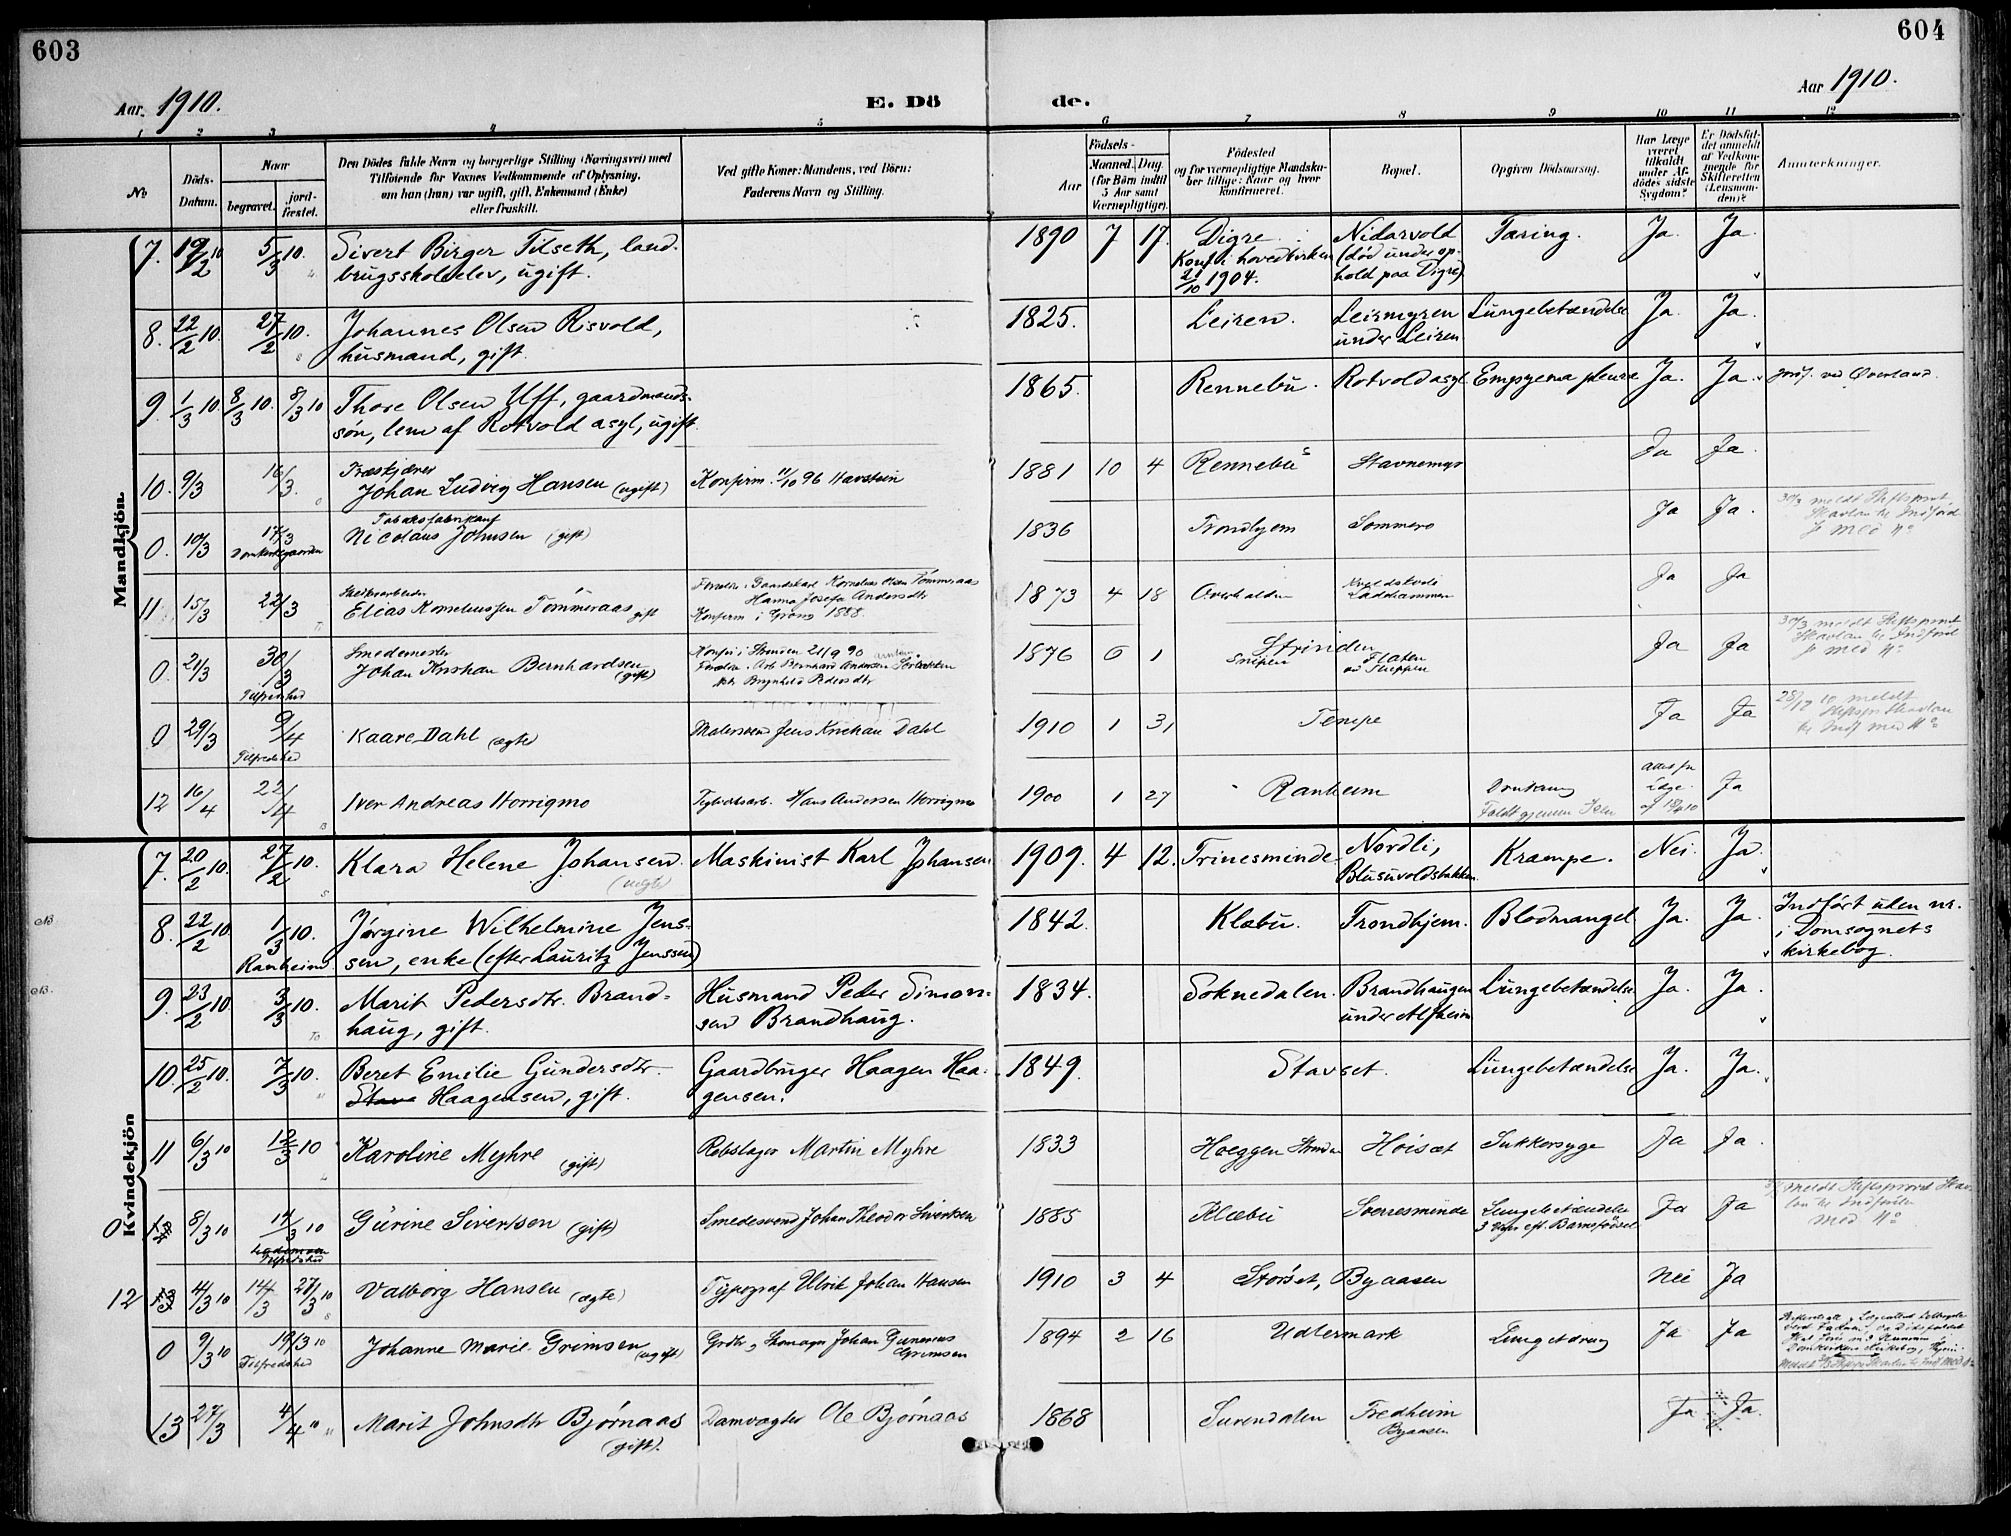 603
604
Aar 1910.
E. Dö
de.
Aar 1910.
1 2 3 4 5 6 7 8 9 10 11 12
№
Döds-
Datum.
Naar
begravet.
jord-
fæstet.
Den Dödes fulde Navn og borgerlige Stilling (Næringsvei) med
Tilföiende for Voxnes Vedkommende af Oplysning,
om han (hun) var ugift, gift, Enkemand (Enke)
eller fraskilt.
Ved gifte Koner: Mandens, ved Börn:
Faderens Navn og Stilling.
Födsels-
Aar
Maaned. Dag.
(for Börn indtil
5 Aar samt
Værnepligtige).
Födested
og for værnepligtige Mandska-
ber tillige: Naar og hvor
konfirmeret.
Bopæl.
Opgiven Dödsaarsag.
Har Læge
været
tilkaldt
under Af-
dödes sidste
Sygdom?
Er Dödsfal-
det anmeldt
af Vedkom-
mende for
Skifteretten
(Lensman-
den)?
Anmærkninger.
Mandkjön.
7. 19/2 10 5/3 10. Sivert Birger Tilseth, land-
brugsskoleelev, ugift. 1890 7 17. Digre
Konf. i hovedkirken
2/10 1904. Nidarvold
(död under op-
hold paa Digre) Tæring. Ja. Ja.
8. 22/2 10. 27/2 10. Johannes Olsen Risvold,
husmand, gift. 1825. Leiren. Leirmyren
under Leiren Lungebetændelse Ja. Ja.
9. 1/3 10. 8/3 10. 8/3 10 Thore Olsen Uff, gaardmands-
søn, lem af Rotvold asyl, ugift. 1865. Rennebu. Rotvold asyl Empyema pleura Ja. Ja.
10. 9/3 16/3. Træskjærer
Johan Ludvig Hansen (ugift) Konfirm. 11/10 96 Havstein 1881 10 4 Rennebu Stavnemyr Ja Ja.
0. 10/3 17/3
Domkirkegaarden Tobaksfabrikant
Nicolaus Johnsen (gift) 1836 Trondhjem Sommero Ja Ja. 30/3 meldt Stiftsprovst
Skavlan til Indförel
med No
11 15/3 22/3 Elias Korneliussen Tömmeraas gift Forældre: Gaardskarl Kornelius Olsen Tömmeraas
Hanna Josefa Andersdtr
Konfirm i Grong 1888. 1873 4 18 Overhalden Ladehammer Ja Ja
0. 21/3 30/3
Tilfredshed Smedemester
Johan Kristian Bernhardsen (gift) Konfir. i Strinden 21/9 90
Forældre: Arb Bernhard Andersen 1876 6 1 Strinden
Flaten Ja Ja 30/3 meldt Stiftsprovst
Skavlan til Indförel
med No
0 29/3 9/4
Tilfredshed Kaare Dahl (ægte) Malersvend Jens Kristian Dahl 1910 1 31 Tempe Ja Ja meldt
Skavlan
med No
12 16/4 22/4 Iver Andreas Horrigmo Teglverksarb. Hans Andersen Horrigmo 1900 1 27 Ranheim Drukning
Faldt gjennem Isen Ja
Kvindekjön
7. 20/2 10. 27/2 10. Klara Helene Johansen.
(ægte) Maskinist Karl Johansen 1909. 4 12. Trinesminde Nordli,
Blusuvoldsbakken. Krampe. Nei. Ja.
NB. 8. 22/2 10. 1/3 10.
Ranheim. Jørgine Wilhelmine Jens-
sen, enke (efter Lauritz Jenssen) 1842. Klæbu. Trondhjem. Blodmangel Ja. Ja. Indført uden nr.
i Domsognets
kirkebog.
NB. 9. 23/2 10. 3/3 10. Marit Pedersdtr. Brand-
haug, gift. Husmand Peder Simon-
sen Brandhaug. 1834. Soknedalen. Brandhaugen
under Alfheim Lungebetændelse Ja. Ja.
10. 25/2 10. 7/3 10. Beret Emilie Gundersdtr.
Stav Haagensen, gift. Gaardbruger Haagen Haa-
gensen. 1849. Stavset. Lungebetændelse Ja. Ja.
11 6/3 10 12/3 10 Karoline Myhre (gift) Rebslager Martin Myhre 1833 Hoeggen Strinden Hoisæt Sukkersyge Ja Ja.
0 12 8/3 10 14/3 10
Tilfredshed Gurine Sivertsen (gift) Smedesvend Johan Theodor Sivertsen 1885 Klæbu Sverresminde Lungebetændelse
3 Uger eft. Barnsfödsel Ja Ja meldt Stiftsprovst Skav-
lan til Indförelse
med No
12 13 4/3 10 14/3 27/3 10 Valborg Hansen (ægte) Typograf Ulrik Johan Hansen 1910 3 4 Storset, Byaasen nei Ja
0 9/3 10 19/3 10
Tilfredshed Johanne Marie Grimsen (ugift) Johan Gunerius
Grimsen 1894 2 16 Udlermark Ja Ja
13 27/3 4/4 " Marit Johnsdtr Bjørnaas
(gift). Damvogter Ole Bjørnaas 1868 Surendalen Fredheim
Byaasen Ja Ja.